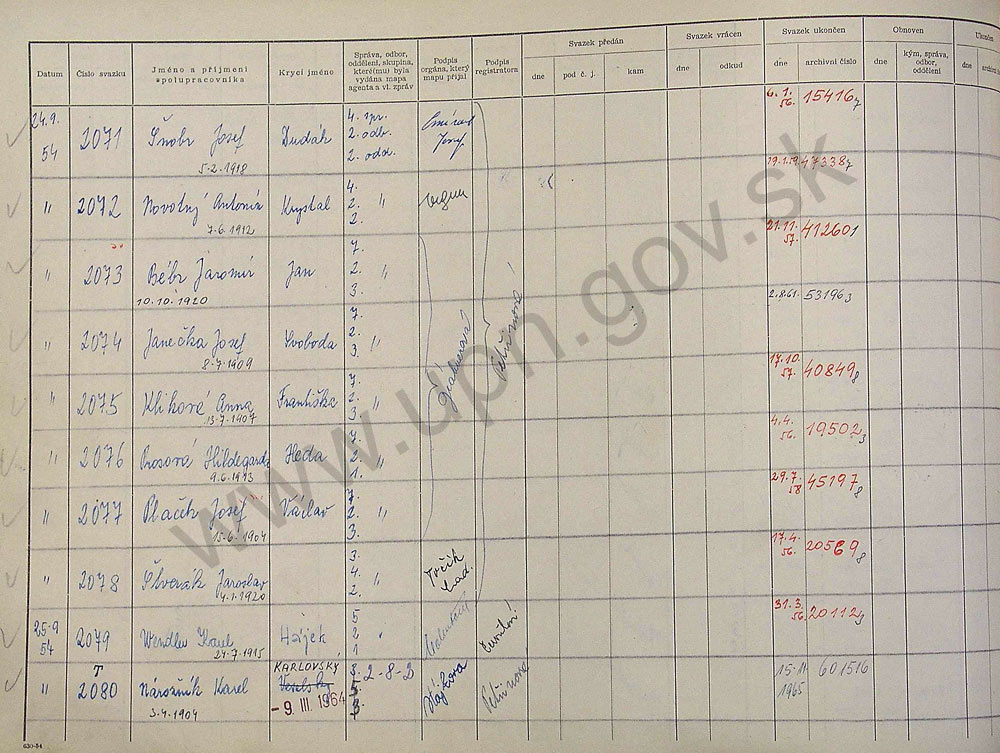 Datum Číslo svazku Jméno a příjmení spolupracovníka Krycí jméno Správa, odbor, oddělení, skupina, které(mu) byla vydána mapa agenta a vl. zpráv Podpis orgána, který mapu přijal Podpis registratora Svazek předán dne pod č. j. kam Svazek vrácen dne odkud Svazek ukončen dne archivní číslo Obnoven dne kým, správa, odbor, oddělení dne
24.9. 54 2071 Šnobr Josef 5.2.1918 Dudák 4. spr. 2. odb. 2. odd. Josef 6.1. 56. 15416
" 2072 Novotný Antonín 7.6.1912 Krystal 4. 2. " 2. 19.1.59. 47338
" 2073 Bébr Jaromír 10.10.1920 Jan 7. 2. " 3. 21.11. 57. 412601
" 2074 Janečka Josef 8.7.1909 Svoboda 7. 2. 3. " 2.8.61. 53196 3
" 2075 Klíková Anna 13.7.1907 Františka 7. 2. " 3. 17.10. 57. 40849 8
" 2076 Hildegarda 9.6.1913 Heda 7. 2. " 1. 4.4. 56. 19502 3
" 2077 Plaček Josef 15.6.1904 Václav 7. 2. " 3. 29.7. 58 45197 8
" 2078 Jaroslav 4.1.1920 3. 4. " 2. 17.4. 56. 20569 8
25.9 54 2079 Karel 24.7.1915 Hájek 5 2 " 1 31.3. 56. 20112 3
" T 2080 Nározník Karel 3.4.1904 KARLOVSKÝ Veselský - 9. III. 1964 3-2-8-B 15.11. 1965 601516
630-54
www.upn.gov.sk